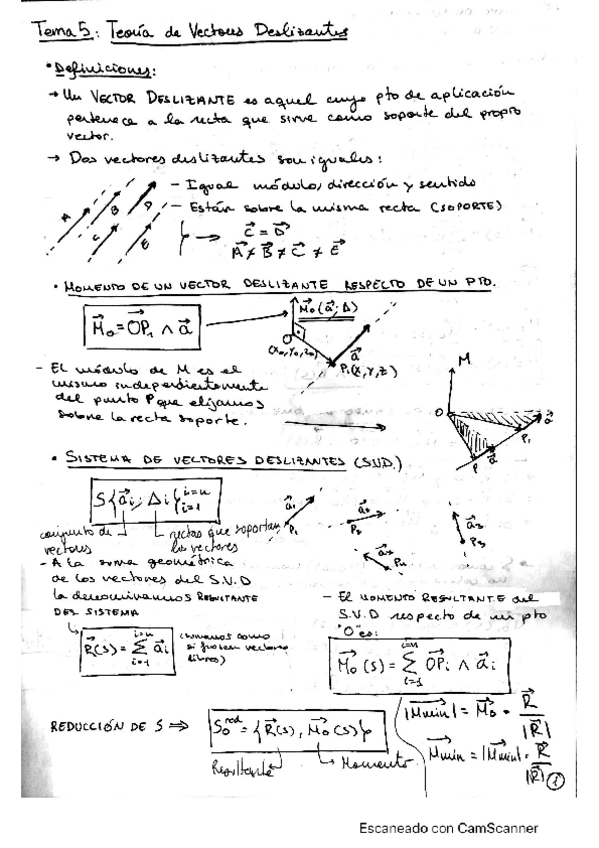 Tema 5: Teoría de Vectores Deslizantes
• Definiciones:
→ Un VECTOR DESLIZANTE es aquel cuyo pto de aplicación
pertenece a la recta que sirve como soporte del propio
vector.
→ Dos vectores deslizantes son iguales:
- Igual módulo, dirección y sentido
- Están sobre la misma recta (SOPORTE)
A B D C E
→ C⃗ = D⃗
A⃗ ≠ B⃗ ≠ C⃗ ≠ E⃗
• MOMENTO DE UN VECTOR DESLIZANTE RESPECTO DE UN PTO.
M⃗o = OP⃗1 ∧ a⃗
M⃗o (a⃗; Δ)
O
(x0, y0, z0)
a⃗
P1(x, y, z)
- EL módulo de M es el
mismo independientemente
del punto P que elijamos
sobre la recta soporte.
M
O
P1
a⃗
P
a⃗
• SISTEMA DE VECTORES DESLIZANTES (S.V.D.)
S{a⃗i, Δi}i=1^i=n
conjunto de vectores
rectas que soportan los vectores
a⃗1 P1
a⃗2 P2
a⃗3 P3
P4
- A la suma geométrica
de los vectores del S.V.D
la denominamos RESULTANTE
DEL SISTEMA
R⃗(s) = Σ_{i=1}^{i=n} a⃗i
(sumamos como
si fuesen vectores
libres)
- EL MOMENTO RESULTANTE del
S.V.D respecto de un pto
"O" es:
M⃗o (s) = Σ_{i=1}^{i=n} OP⃗i ∧ a⃗i
REDUCCIÓN DE S ⇒
So^red = {R⃗(s), M⃗o(s)}
Resultante
Momento
|M⃗min| = M⃗o · R⃗/|R⃗|
M⃗min = |M⃗min| · R⃗/|R⃗|
1
Escaneado con CamScanner